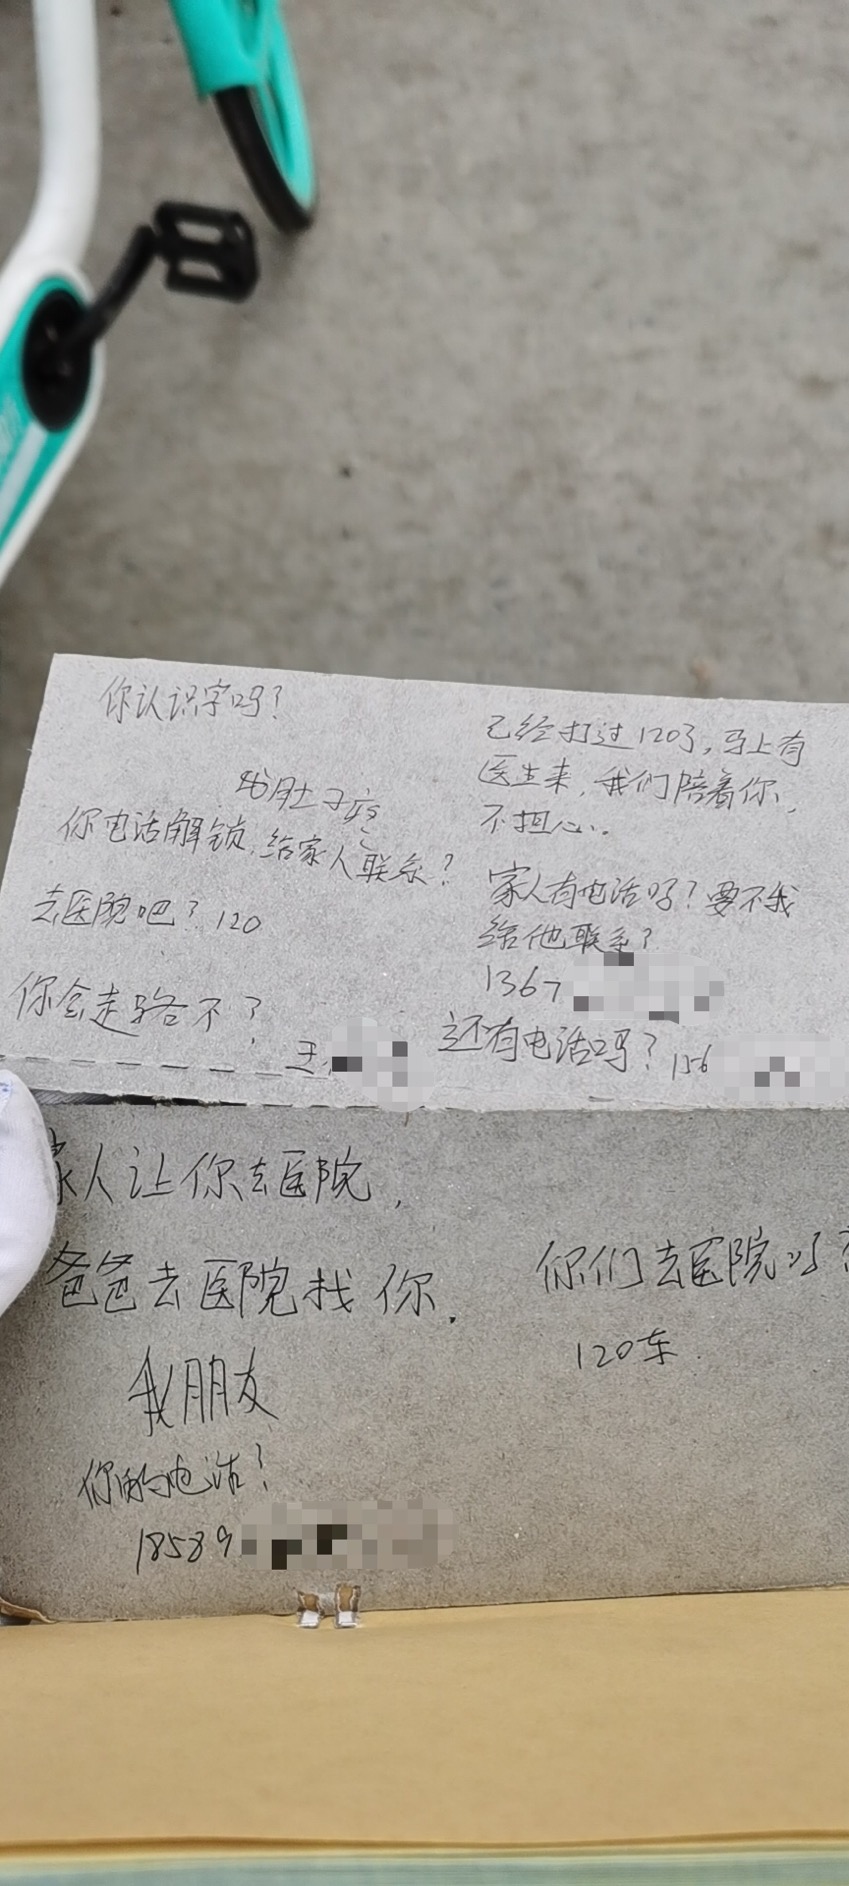 你认识字吗?
我肚子疼
你电话解锁,给家人联系?
去医院吧?120
你会走路不?
王
已经打过120了,马上有
医生来,我们陪着你,
不担心.
家人有电话吗?要不我
给他联系?
1367
还有电话吗?156
家人让你去医院,
爸爸去医院找你.
我朋友
你的电话?
18589
你们去医院吗?
120车.